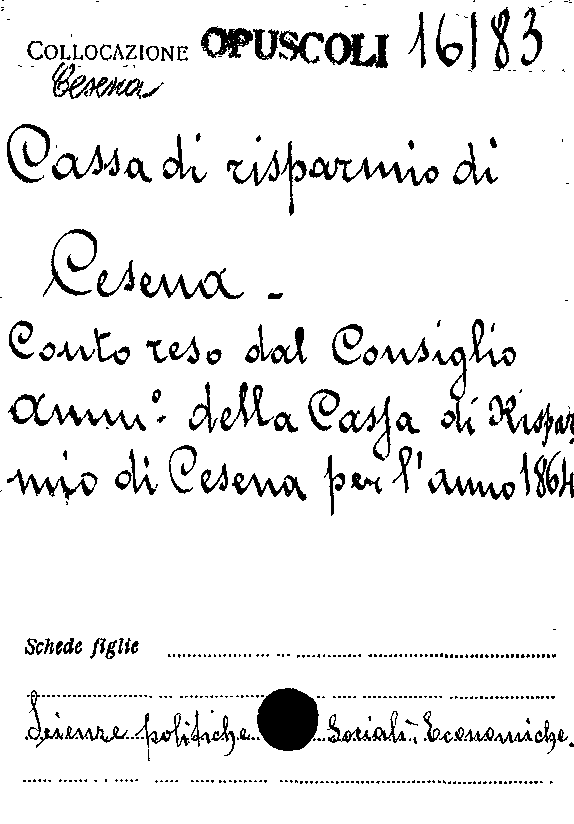 COLLOCAZIONE OPUSCOLI 16183
Cesena
Cassa di risparmio di
Cesena -
Conto reso dal Consiglio
amm.º della Cassa di Rispar
mio di Cesena per l'anno 1864
Schede figlie
Scienze politiche Sociali, Economiche.